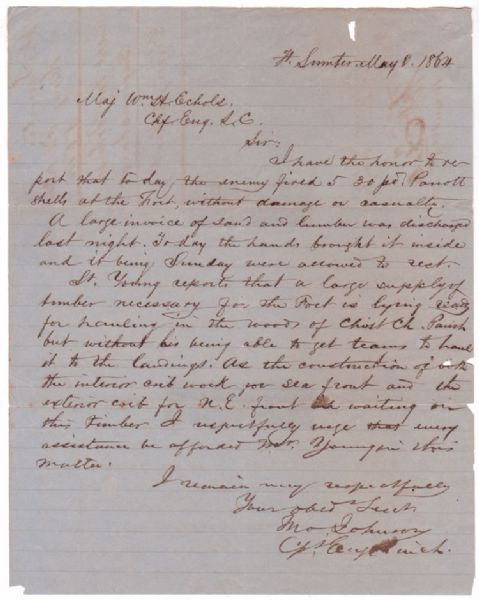 Ft. Sumter May 8. 1864
Maj Wm. H. Echols.
Chf Eng. S. C.
Sir:
I have the honor to re
port that to day the enemy fired 5 30 pdr Parrott
shells at the Fort, without damage or casualty.
A large invoice of sand and lumber was discharged
last night. To day the hands brought it inside
and it being Sunday were allowed to rest.
Lt. Young reports that a large supply of
timber necessary for the Fort is lying ready
for hauling in the woods of Christ Ch. Parish
but without his being able to get teams to haul
it to the landings. As the construction of
the interior crib work for sea front and the
exterior crib for N. E. front waiting on
this timber I respectfully urge that every
assistance be afforded Young in this
matter.
I remain very respectfully
Your obedt Servt
Jno. Johnson